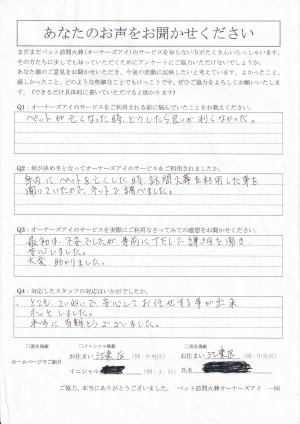 あなたのお声をお聞かせください
まだまだペット訪問火葬(オーナーズアイ)のサービスを知らない方がたくさんいらっしゃいます。
その方たちに少しでも知っていただくためにアンケートにご協力いただけないでしょうか。
あなた様のご意見をお聞かせいただき、今後の活動に反映したいと考えています。よかったこと、
嬉しかったこと、どのような些細なことでもけっこうです。ぜひご協力をよろしくお願いいたします。
(できるだけ具体的に書いていただけると助かります)
Q1:オーナーズアイのサービスをご利用される前に悩んでいたことをお教えください。
ペットが亡くなった時、どうしたら良いか判らなかった。
Q2:何が決め手となってオーナーズアイのサービスをご利用されましたか。
ペットを亡くした時、訪問火葬を利用した事を
聞いていたので、ネットで調べました。
Q3:オーナーズアイのサービスを実際にご利用なさってみての感想をお聞かせください。
最初は、不安でしたが、事前にTELで説明を聞き
安心しました。
大変助かりました。
Q4:対応したスタッフの対応はいかがでしたか。
とても、ていねいで、安心してお任せする事が出来
ホッとしました。
本当に有難とうございました。
□イニシャル掲載
お住まい 江東区 (例:中央区)
お住まい 江東区 (例:中央区)
ホームページでご紹介
イニシャル (例:J.H)
氏名
ご協力、本当にありがとうございました。 ペット訪問火葬オーナーズアイ 一同